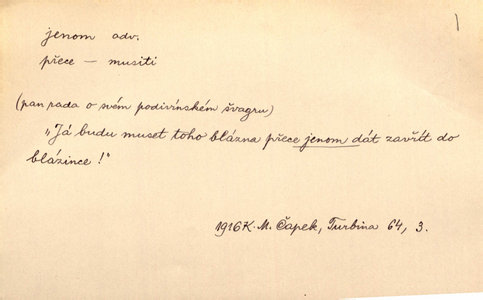 jenom adv.
přece – musiti
(pan rada o svém podivínském švagru)
„Já budu muset toho blázna přece jenom dát zavřít do
blázince!"
1916 K. M. Čapek, Turbina 64, 3.